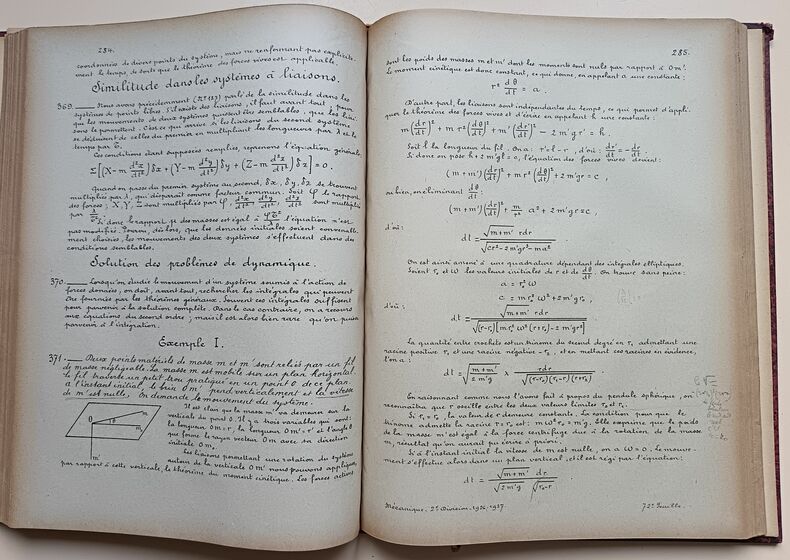 284.
coordonnées de divers points du système, mais ne renfermant pas explicite-
ment le temps, de sorte que le théorème des forces vives est applicable.
Similitude dans les systèmes à liaisons.
369. Nous avons précédemment parlé de la similitude dans les
systèmes de points libres. S'il existe des liaisons, il faut avant tout, pour
que les mouvements de deux systèmes puissent être semblables, que les liai-
sons le permettent. C'est ce qui arrive si les liaisons du second système
se déduisent de celles du premier en multipliant les longueurs par λ et le
temps par τ.
Ces conditions étant supposées remplies, reprenons l'équation générale
Σ[(X-m d²x/dt²)δx+(Y-m d²y/dt²)δy+(Z-m d²z/dt²)δz]=0.
Quand on passe du premier système au second, δx, δy, δz se trouvent
multipliés par λ, qui disparaît comme facteur commun. Soit φ le rapport
des forces; X, Y, Z sont multipliés par φ, d²x/dt², d²y/dt², d²z/dt² sont multipliés
par λ/τ².
Si donc le rapport μ des masses est égal à φτ²/λ l'équation n'est
pas modifiée. Pourvu, dès lors, que les données initiales soient convenable-
ment choisies, les mouvements des deux systèmes s'effectuent dans des
conditions semblables.
Solution des problèmes de dynamique.
370. Lorsqu'on étudie le mouvement d'un système soumis à l'action de
forces données, on doit, avant tout, rechercher les intégrales qui peuvent
être fournies par les théorèmes généraux. Souvent ces intégrales suffisent
pour parvenir à la solution complète. Dans le cas contraire, on a recours
aux équations du second ordre; mais il est alors bien rare qu'on puisse
parvenir à l'intégration.
Exemple I.
371. Deux points matériels de masse m et m' sont reliés par un fil
de masse négligeable. La masse m est mobile sur un plan horizontal.
Le fil traverse un petit trou pratiqué en un point O de ce plan.
à l'instant initial, le brin O m' pend verticalement et la vitesse
de m' est nulle. On demande le mouvement du système.
Il est clair que la masse m' va demeurer sur la
verticale du point O. Il y a trois variables qui sont:
la longueur O m = r, la longueur O m' = r' et l'angle θ
que forme le rayon vecteur O m avec sa direction
initiale O m₀
Les liaisons permettant une rotation du système
autour de la verticale O m' nous pouvons appliquer,
par rapport à cette verticale, le théorème du moment cinétique. Les forces actives
O
m₀
θ
m
m'
285.
sont les poids des masses m et m' dont les moments sont nuls par rapport à O m'.
Le moment cinétique est donc constant, ce qui donne, en appelant a une constante:
r² dθ/dt = a.
D'autre part, les liaisons sont indépendantes du temps, ce qui permet d'appli-
quer le théorème des forces vives et d'écrire en appelant h une constante:
m(dr/dt)² + m r²(dθ/dt)² + m'(dr'/dt)² - 2 m'g r' = h.
Soit l la longueur du fil. On a: r'=l-r, d'où: dr'/dt = - dr/dt.
Si donc on pose h+2m'gl=c, l'équation des forces vives devient:
(m+m')(dr/dt)² + mr²(dθ/dt)² + 2m'gr = c,
ou bien, en éliminant dθ/dt
(m+m')(dr/dt)² + m/r² a² + 2m'gr = c,
d'où:
dt = √(m+m') rdr / √(cr²-2m'gr³-ma²)
On est ainsi amené à une quadrature dépendant des intégrales elliptiques.
Soient r₀ et ω les valeurs initiales de r et de dθ/dt. On trouve sans peine:
a = r₀²ω
c = m r₀²ω²+2m'gr₀,
d'où:
dt = √(m+m') rdr / √((r-r₀)[mr₀²ω²(r+r₀)-2m'gr²])
La quantité entre crochets est un trinôme du second degré en r, admettant une
racine positive r₁ et une racine négative -r₂, et en mettant ces racines en évidence,
l'on a:
dt = √((m+m')/2m'g) × rdr / √((r-r₀)(r₁-r)(r+r₂))
En raisonnant comme nous l'avons fait à propos du pendule sphérique, on
reconnaîtra que r oscille entre les deux valeurs limites r₀ et r₁.
Si r₀ = r₁, la valeur de r demeure constante. La condition pour que le
trinôme admette la racine r=r₀ est: mω²r₀ = m'g. Elle exprime que le poids
de la masse m' est égal à la force centrifuge due à la rotation de la masse
m, résultat qu'on aurait pu écrire à priori.
Si à l'instant initial la vitesse de m est nulle, on a ω=0. Le mouve-
ment s'effectue alors dans un plan vertical, et il est régi par l'équation:
dt = √(m+m')/√(2m'g) dr/√(r₀-r).
Mécanique_2e Division_1936-1937
72e Feuille.